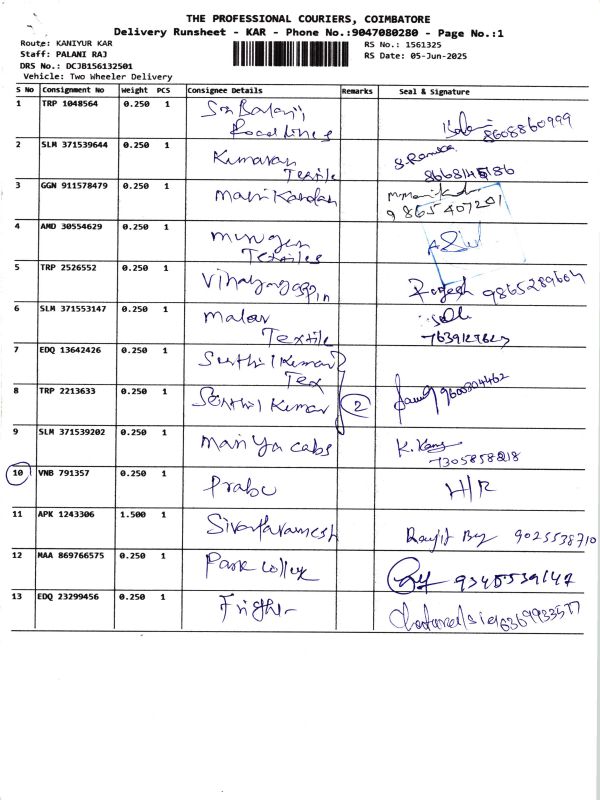 THE PROFESSIONAL COURIERS, COIMBATORE
Delivery Runsheet - KAR - Phone No.:9047080280 - Page No.:1
Route: KANIYUR KAR
RS No.: 1561325
Staff: PALANI RAJ
RS Date: 05-Jun-2025
DRS No.: DCJB156132501
Vehicle: Two Wheeler Delivery
S No Consignment No Weight PCS Consignee Details Remarks Seal & Signature
1 TRP 1048564 0.250 1 Sri Balaji
Road lines 8608860999
2 SLM 371539644 0.250 1 Kumaran
Textile
3 GGN 911578479 0.250 1 Manikandan
9865407201
4 AMD 30554629 0.250 1 Murugan
Textiles
5 TRP 2526552 0.250 1 Rajesh 9865289604
6 SLM 371553147 0.250 1 Malar
Textile
7 EDQ 13642426 0.250 1 Senthil Kumar
Tex
8 TRP 2213633 0.250 1 Senthil Kumar 2
9 SLM 371539202 0.250 1 Mariya cabs
10 VNB 791357 0.250 1 Prabu H/R
11 APK 1243306 1.500 1 9025538710
12 MAA 869766575 0.250 1 Park college
13 EDQ 23299456 0.250 1